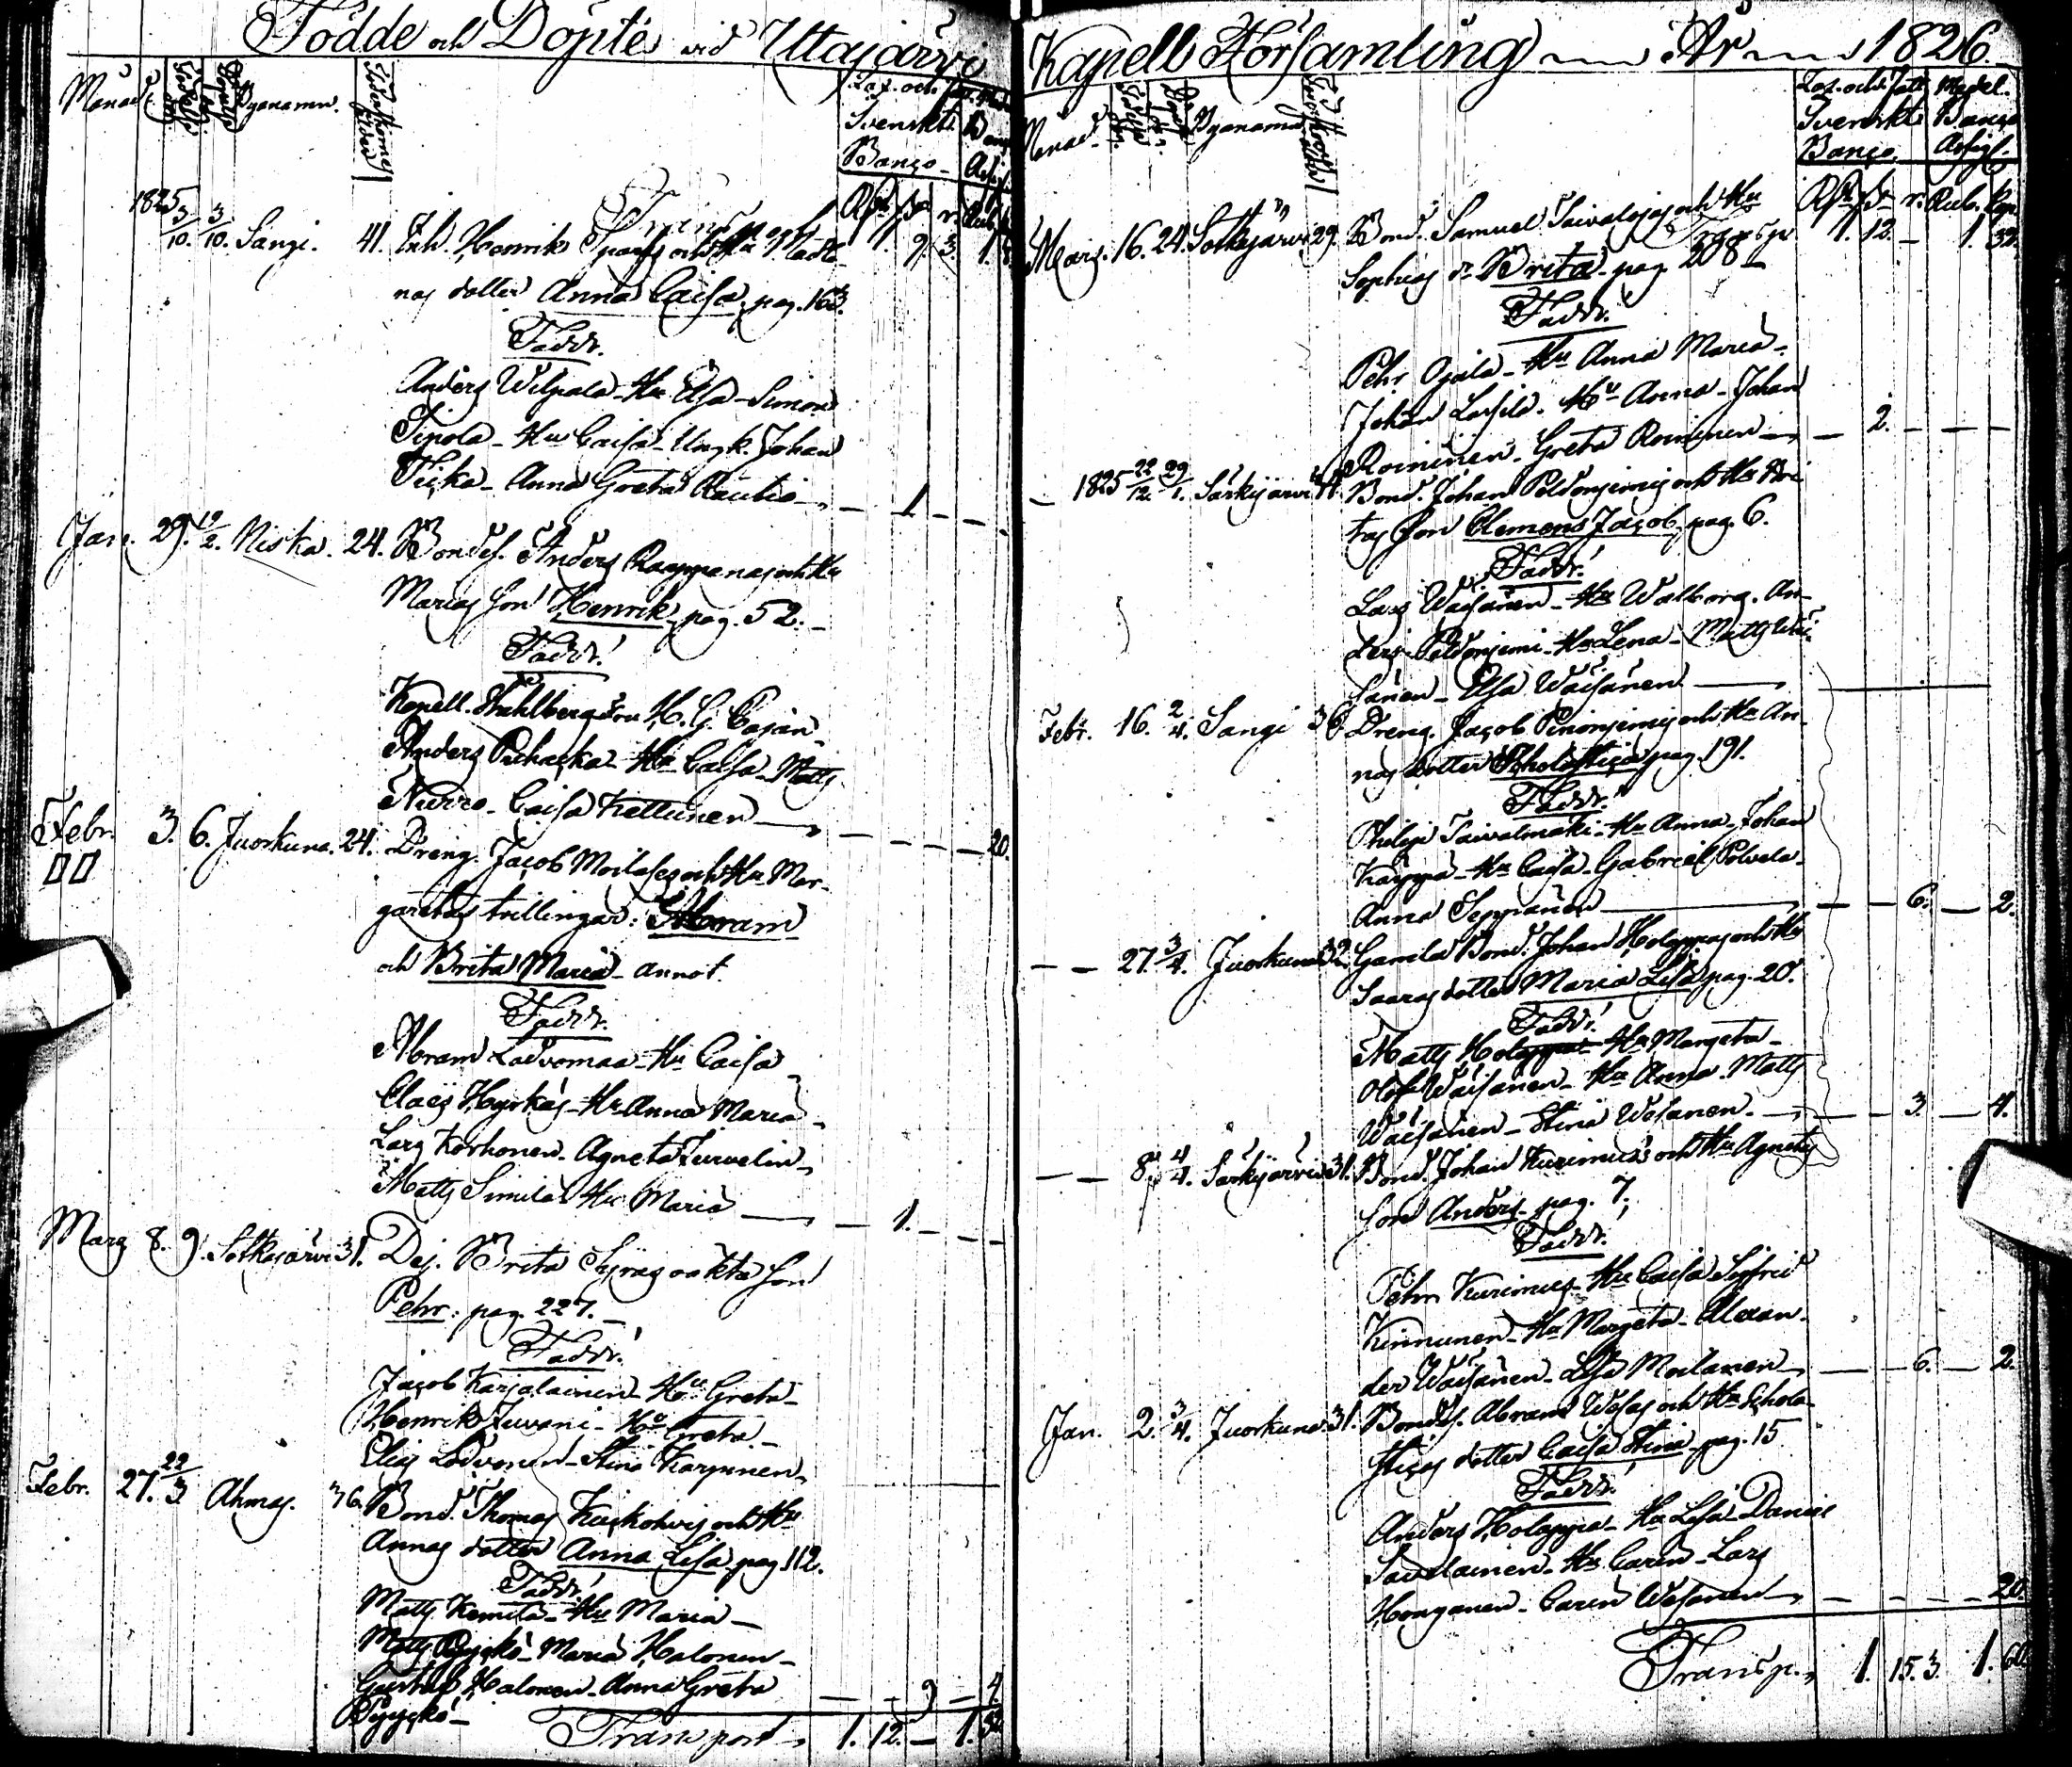 Födde och Döpte vid Uttajärvi
Månad. Födelse dag Döpelse dag Byanamn. Moders ålder
Lax. och fatt. Med.
Svenskt Banco
Banco Assig.
Transport
Rdr sk r. Rub. K
1825 3/10. 3/10. Sangi. 41. Inh. Henrik och Hu Madle 1. 9. 3. 1.
nas dotter Anna Caisa, pag. 163.
Fadd.
Anders Wilpala - Hu Elsa - Simon
Sipola - Hu Caisa - Ungk. Johan
Anna Greta Rautio - 1. - -
Jan. 29. 12/2. Niska. 24. Bondes. Anders Raappanas och Hu
Marias son Henrik, pag. 52. -
Fadd.
Kapell. Wahlberg H. G. Cajan
Anders Puhakka - Hu Caisa - Matts
Nurro - Caisa Kettunen - - - 20.
Febr. 3. 6. Juorkuna. 24. Dreng. Jacob Moilases och Hu Mar-
garetas tvillingar: Abram
och Brita Maria - annot.
Fadd.
Abram Lodvonaa - Hu Caisa -
Claes Hyrkäs - Hu Anna Maria -
Lars Korhonen - Agneta Turvelin -
Matts Similä - Hu Maria - 1. - -
Mars 8. 9. Sotkajärvi 31. Dej. Brita oäkta son
Pehr: pag. 227. -
Fadd.
Jacob Karjalainen - Hu Greta -
Henrik Juvani - Hu Greta. -
Elias Lodvonen - Stina Karpinen -
Febr. 27. 22/3. Ahmas. 36. Bond. Thomas Kuikohvis och Hu
Annas dotter Anna Lisa, pag. 112.
Fadd.
Matts Kemilä - Hu Maria -
Matts Pyyckö - Maria Halonen -
Gustaf Halonen - Anna Greta - 9 - 4.
Pyyckö -
Transport 1. 12. - 1. 32
Kapells Församling År 1826.
Månad. Födelse dag. Döpelse dag. Byanamn Moders ålder
Lax. och fatt. Medel.
Svenskt Banco
Banco. Assigt.
Rdr sk r. Rub. Kop.
Transp. 1. 12. - 1. 32.
Mars. 16. 24. Sotkajärvi 29. Bond. Samuel Taivalojas och Hu
Sophias dr Brita - pag. 208 -
Fadd.
Pehr Ojala - Hu Anna Maria -
Johan Lassila - Hu Anna - Johan
Roininen - Greta Roininen - 2. - - -
1825 22/12. 29/1. Särkijärvi Bond. Johan Poldonjemis och Hu Bri
tas son Clemens Jacob, pag. 6.
Fadd.
Lars Waisänen - Hu Walborg. An-
ders Poldonjemi - Hu Lena - Matts Wai-
sänen - Elsa Waisänen
Febr. 16. 2/4. Sangi 36. Dreng. Jacob Pinonjemis och Hu An-
nas dotter Scholastica, pag. 191.
Fadd.
Philip Taivalmäki - Hu Anna - Johan
Käyppä - Hu Caisa - Gabriel Polvela -
Anna Seppänen - 6. - 2.
27. 3/4. Juorkuna 32. Gamla Bond. Johan Holappas och Hu
Saaras dotter Maria Lisa, pag. 20.
Fadd.
Matts Holappa - Hu Margeta -
Olof Waisänen - Hu Anna. Matts
Waisänen - Stina Wesanen. - 3. - 4.
8. 4/4. Särkijärvi 31. Bond. Johan Kurimus och Hu Agnetas
son Anders, pag. 7.
Fadd.
Pehr Kurimus - Hu Caisa Sigfrid
Kinnunen - Hu Margeta - Alexan-
der Waisänen - Lisa Moilanen - 6. - 2.
Jan. 2. 3/4. Juorkuna. 31. Bondes. Abram Wesas och Hu Schola-
sticas dotter Caisa Stina, pag. 15
Fadd.
Anders Holappa - Hu Lisa - Daniel
Savelainen - Hu Carin - Lars
Honganen - Carin Wesanen - - - - 20.
Transp. 1. 15. 3. 1. 60